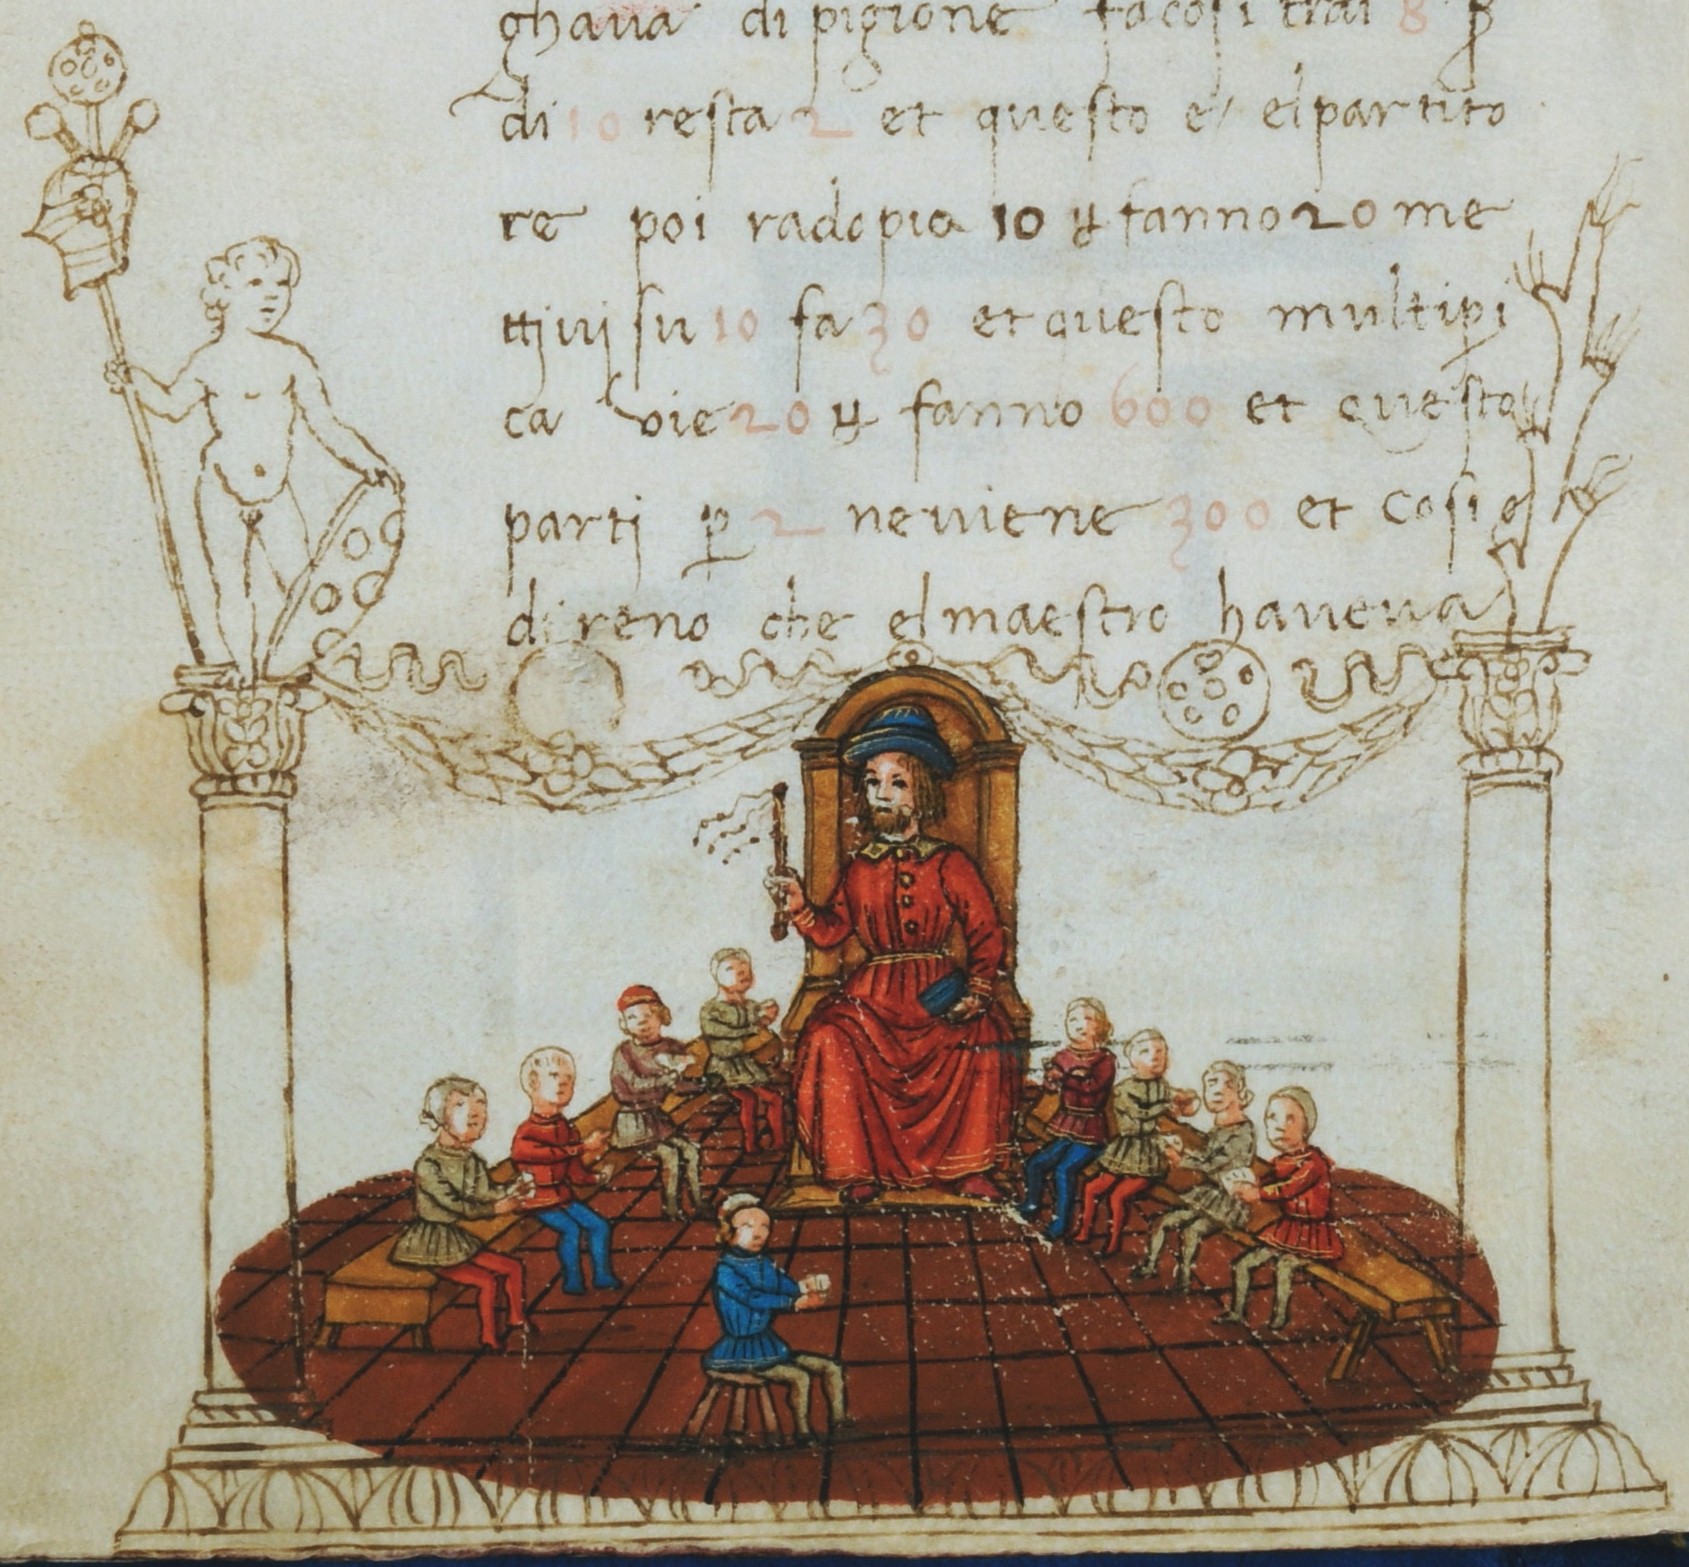 ghaua di pigione fa cosi trai 8 ꝑ
di 10 resta 2 et questo e/ el partito
re poi radopia 10 ꝟ fanno 20 me
ttivi su 10 fa 30 et questo multipi
ca vie 20 ꝟ fanno 600 et questo
parti ꝑ 2 neuiene 300 et cosi
di reno che el maestro haueua